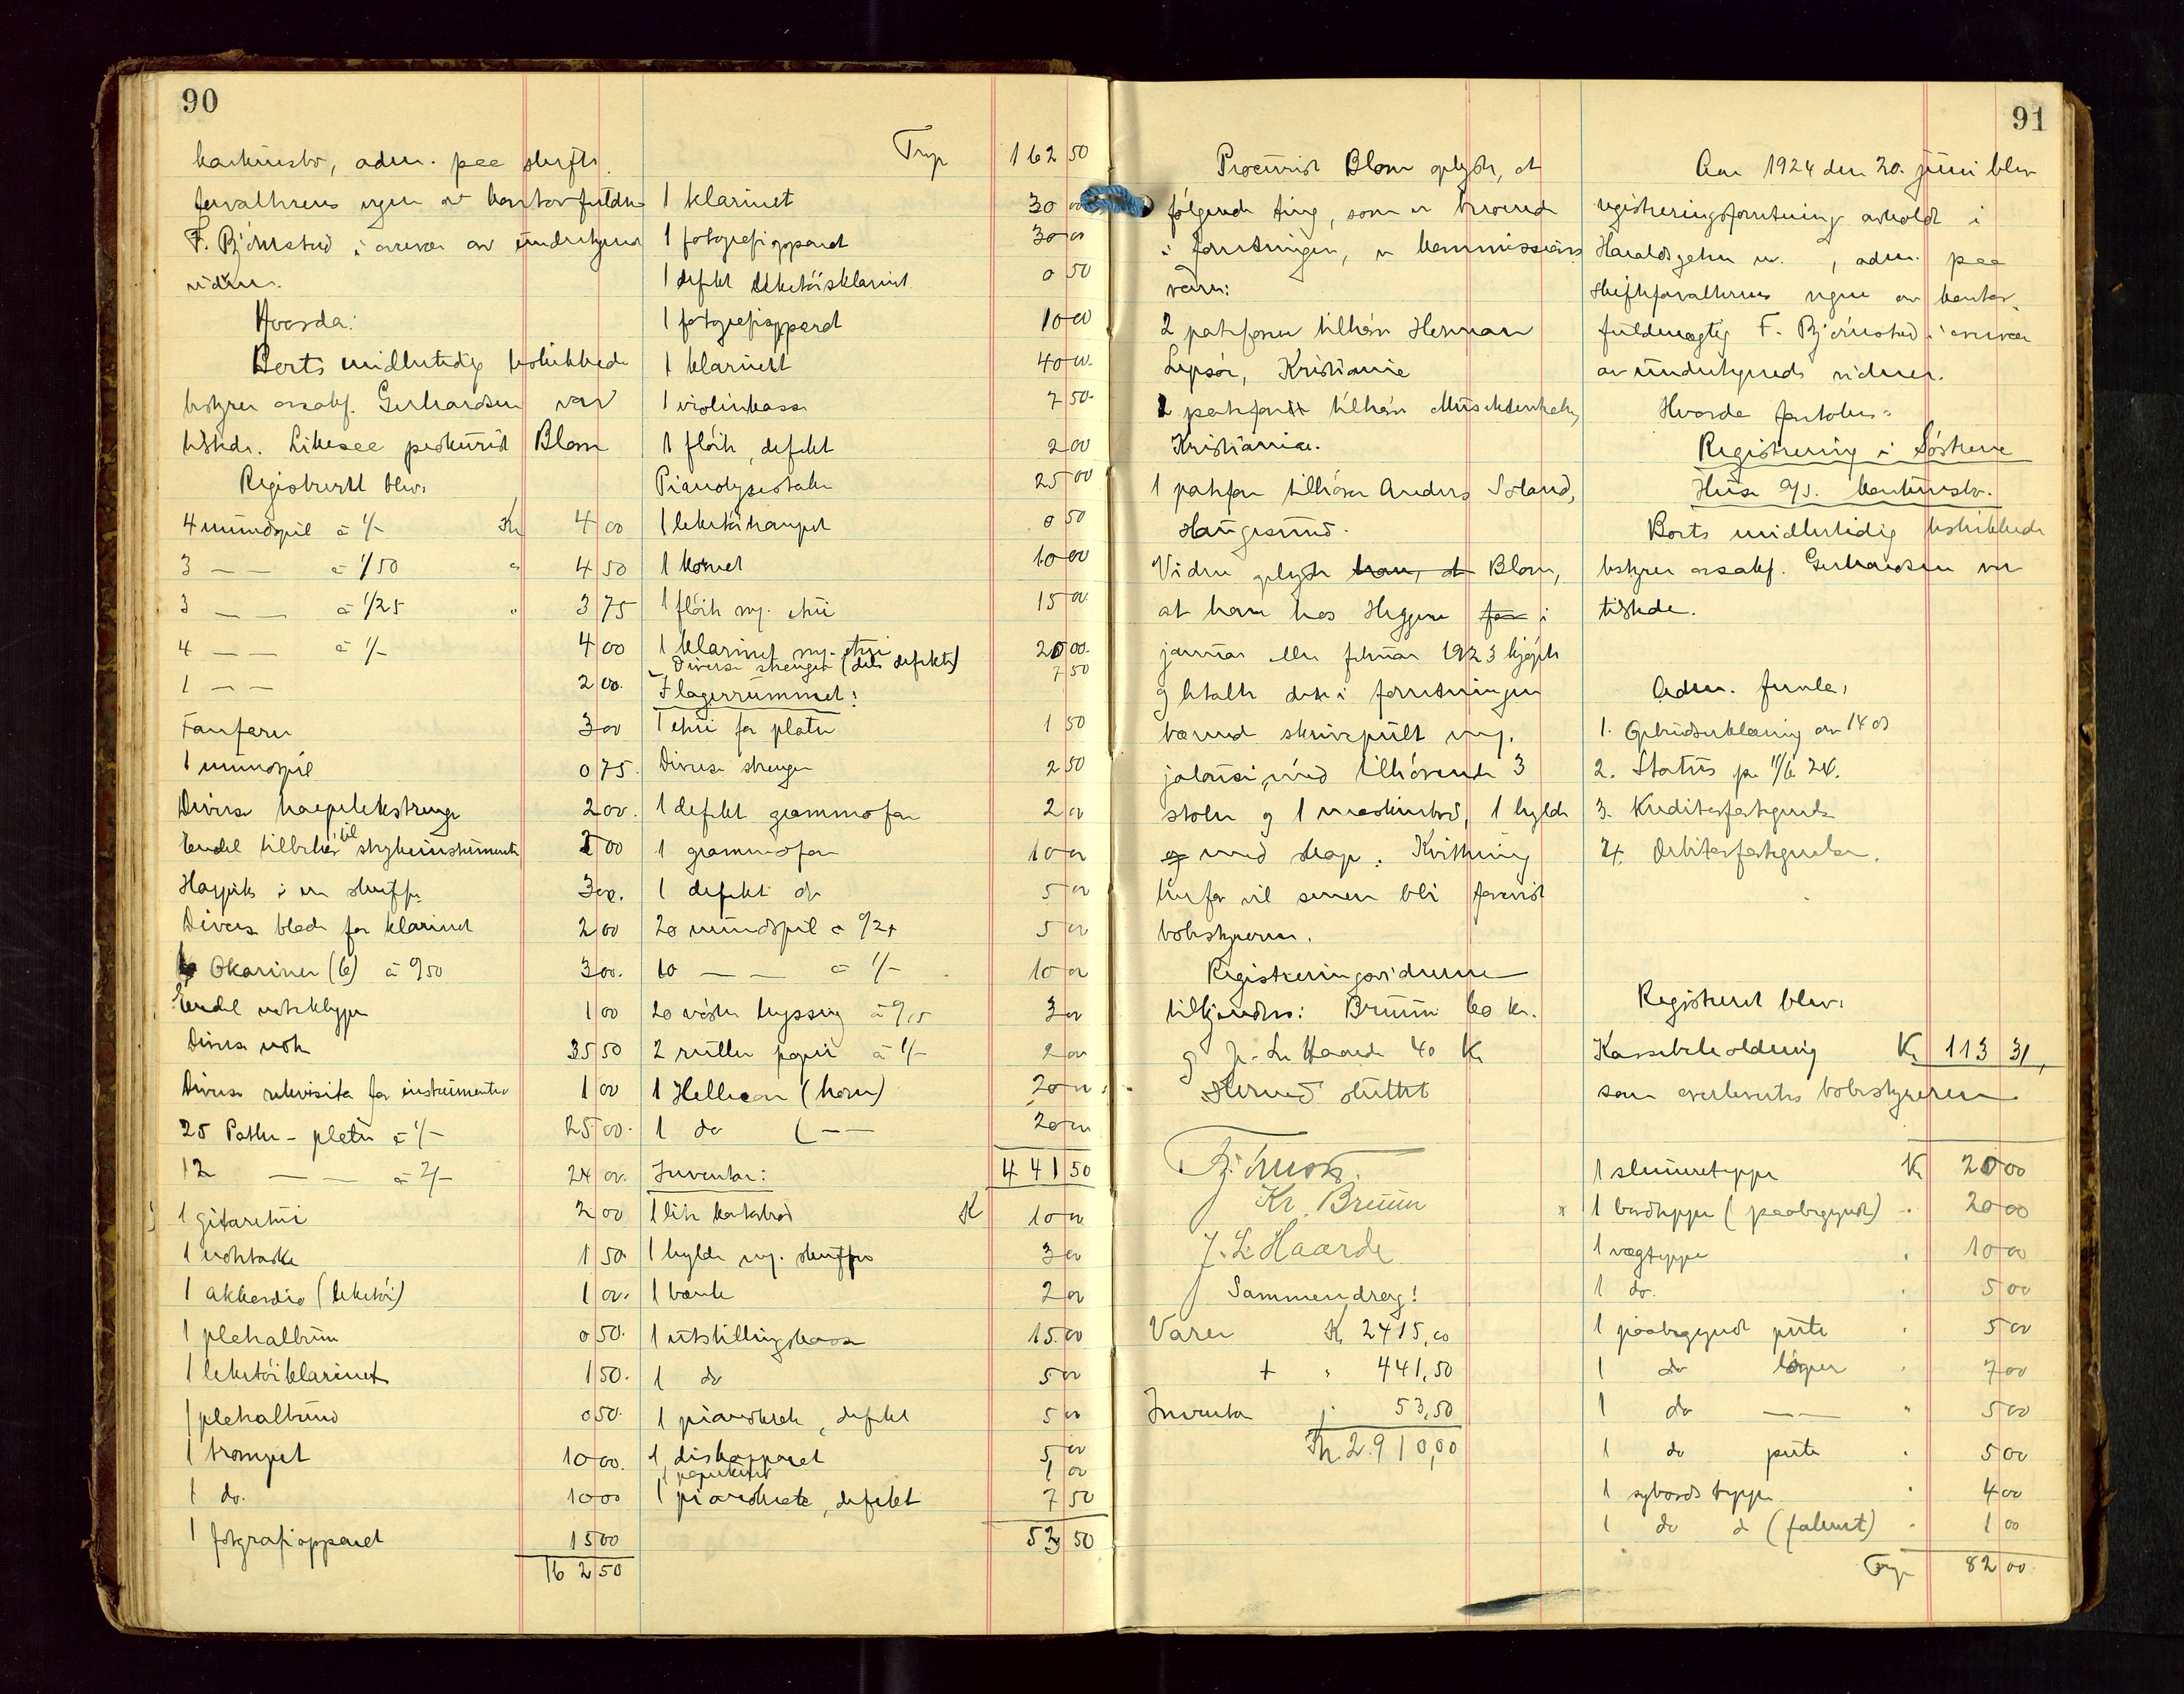 90
konkursbo, adm. paa skifte
forvalterens vegne av kontorfuldm.
F. Bjørnstad i overvær av undertegnede
vidner.
Hvorda:
Boets midlertidig beskikkede
bestyrer o.r.sakf. Gerhardsen var
tilstede. Likesaa prokurist Blom
Registrert blev:
4 mundspil à 1/- Kr 4 00
3 — — à 1/50 " 4 50
3 — — à 1/25 " 3 75
4 — — à 1/- 4 00
1 — — 2 00
Fanfaren 3 00
1 mundspil 0 75
Diverse harpelekstrenge 2 00
Endel tilbehør til strykeinstrumenter 2 00
Harpiks i en skuffe 3 00
Diverse blade for klarinet 2 00
Okariner (6) à 0/50 3 00
Endel noteklyper 1 00
Diverse noter 35 50
Diverse rekvisita for instrumenter 1 00
25 Pathe-plater à 1/- 25 00
12 — — à 2/- 24 00
1 gitaretui 2 00
1 notetaske 1 50
1 akkordio (leketøi) 1 00
1 platealbum 0 50
1 leketøiklarinet 1 50
1 platealbum 0 50
1 trompet 10 00
1 do. 10 00
1 fotografiapparat 15 00
162 50
Trsp 162 50
1 klarinet 30 00
1 fotografiapparat 30 00
1 defekt leketøisklarinet 0 50
1 fotografiapparat 10 00
1 klarinett 40 00
1 violinkasse 7 50
1 fløite, defekt 2 00
25 00
1 leketøitrompet 0 50
1 kornet 10 00
1 fløite m. etui 15 00
1 klarinet m. etui 20 00
Diverse strenger (dels defekte) 7 50
I lagerrummet:
1 etui for plater 1 50
Diverse strenger 2 50
1 defekt grammofon 2 00
1 grammofon 10 00
1 defekt do 5 00
20 mundspil à 0/25 5 00
10 — — à 1/- 10 00
20 æsker hyssing à 0/15 3 00
2 ruller papir à 1/- 2 00
1 Helicon (horn) 20 00
1 do (— — 20 00
441 50
Inventar:
1 lite kontorbord K 10 00
1 hylde m. skuffer 3 00
1 bænk 2 00
1 utstillingskasse 15 00
1 do 5 00
1 pianokrak, defekt 5 00
1 diskapparat 5 00
1 papirkurv 1 00
1 pianokrakk, defekt 7 50
53 50
91
Procurist Blom oplyste, at
følgende ting, som er beroende
i forretningen, er kommissions
varer:
2 patefoner tilhør. Herman
Lepsøe, Kristiania
2 patefoner tilhør. Musiksentralen,
Kristiania.
1 patefon tilhører Anders Soland,
Haugesund.
Videre oplyste han, at Blom,
at han hos Heggen for i
januar eller februar 1923 kjøpte
og betalte den i forretningen
værende skrivepult m.
jalousi, med tilhørende 3
stoler og 1 maskinbord, 1 hylde
og med skap. Kvittering
herfor vil senere bli forevist
bobestyreren.
Registreringsvidnene
tilkjendtes: Bruun 60 kr.
og J. L. Haarde 40 Kr
Hermed sluttet
Bjørnstad.
Kr. Bruun
J. L. Haarde
Sammendrag:
Varer Kr 2415,00
+ " 441,50
Inventar " 53,50
Kr. 2.910,00
Aar 1924 den 20. juni blev
registreringsforretning avholdt i
Haraldsgaten nr. , adm. paa
skifteforvalterens vegne av kontor-
fuldmægtig F. Bjørnstad i overvær
av undertegnede vidner.
Hvorda foretokes:
Registrering i Søstrene
Huse A/S. konkursbo.
Boets midlertidig beskikkede
bestyrer o.r.sakf. Gerhardsen var
tilstede.
Adm. fremla:
1. Opbudserklæring av 14 ds
2. Status pr. 11/6 24.
3. Kreditorfortegnelse
4. Debitorfortegnelse.
Registrert blev:
Kassebeholdning Kr 113 31,
som overlevertes bobestyreren
1 slumreteppe Kr 20 00
x 1 bordteppe (paabegyndt) " 20 00
1 vægteppe " 10 00
1 do. " 5 00
1 paabegyndt pute " 5 00
1 do løper " 7 00
1 do — — " 5 00
1 do pute " 5 00
1 sybordsteppe " 4 00
1 do do (falmet) " 1 00
Trsp 82 00